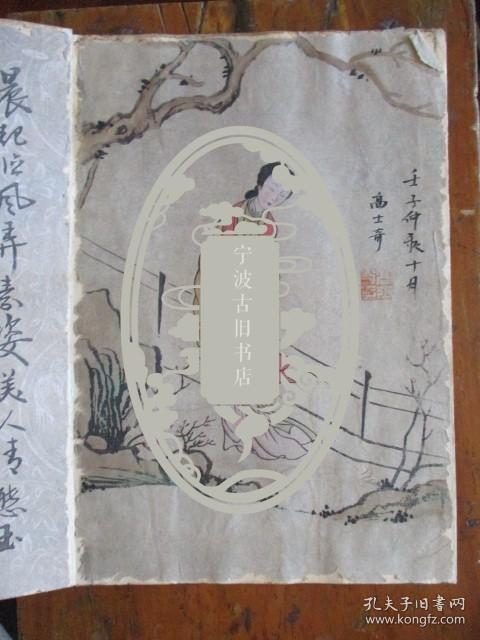 晨起临风弄素姿美人青態玉
壬子仲辰十月
高士奇
宁波古旧书店
孔夫子旧书网
www.kongfz.com